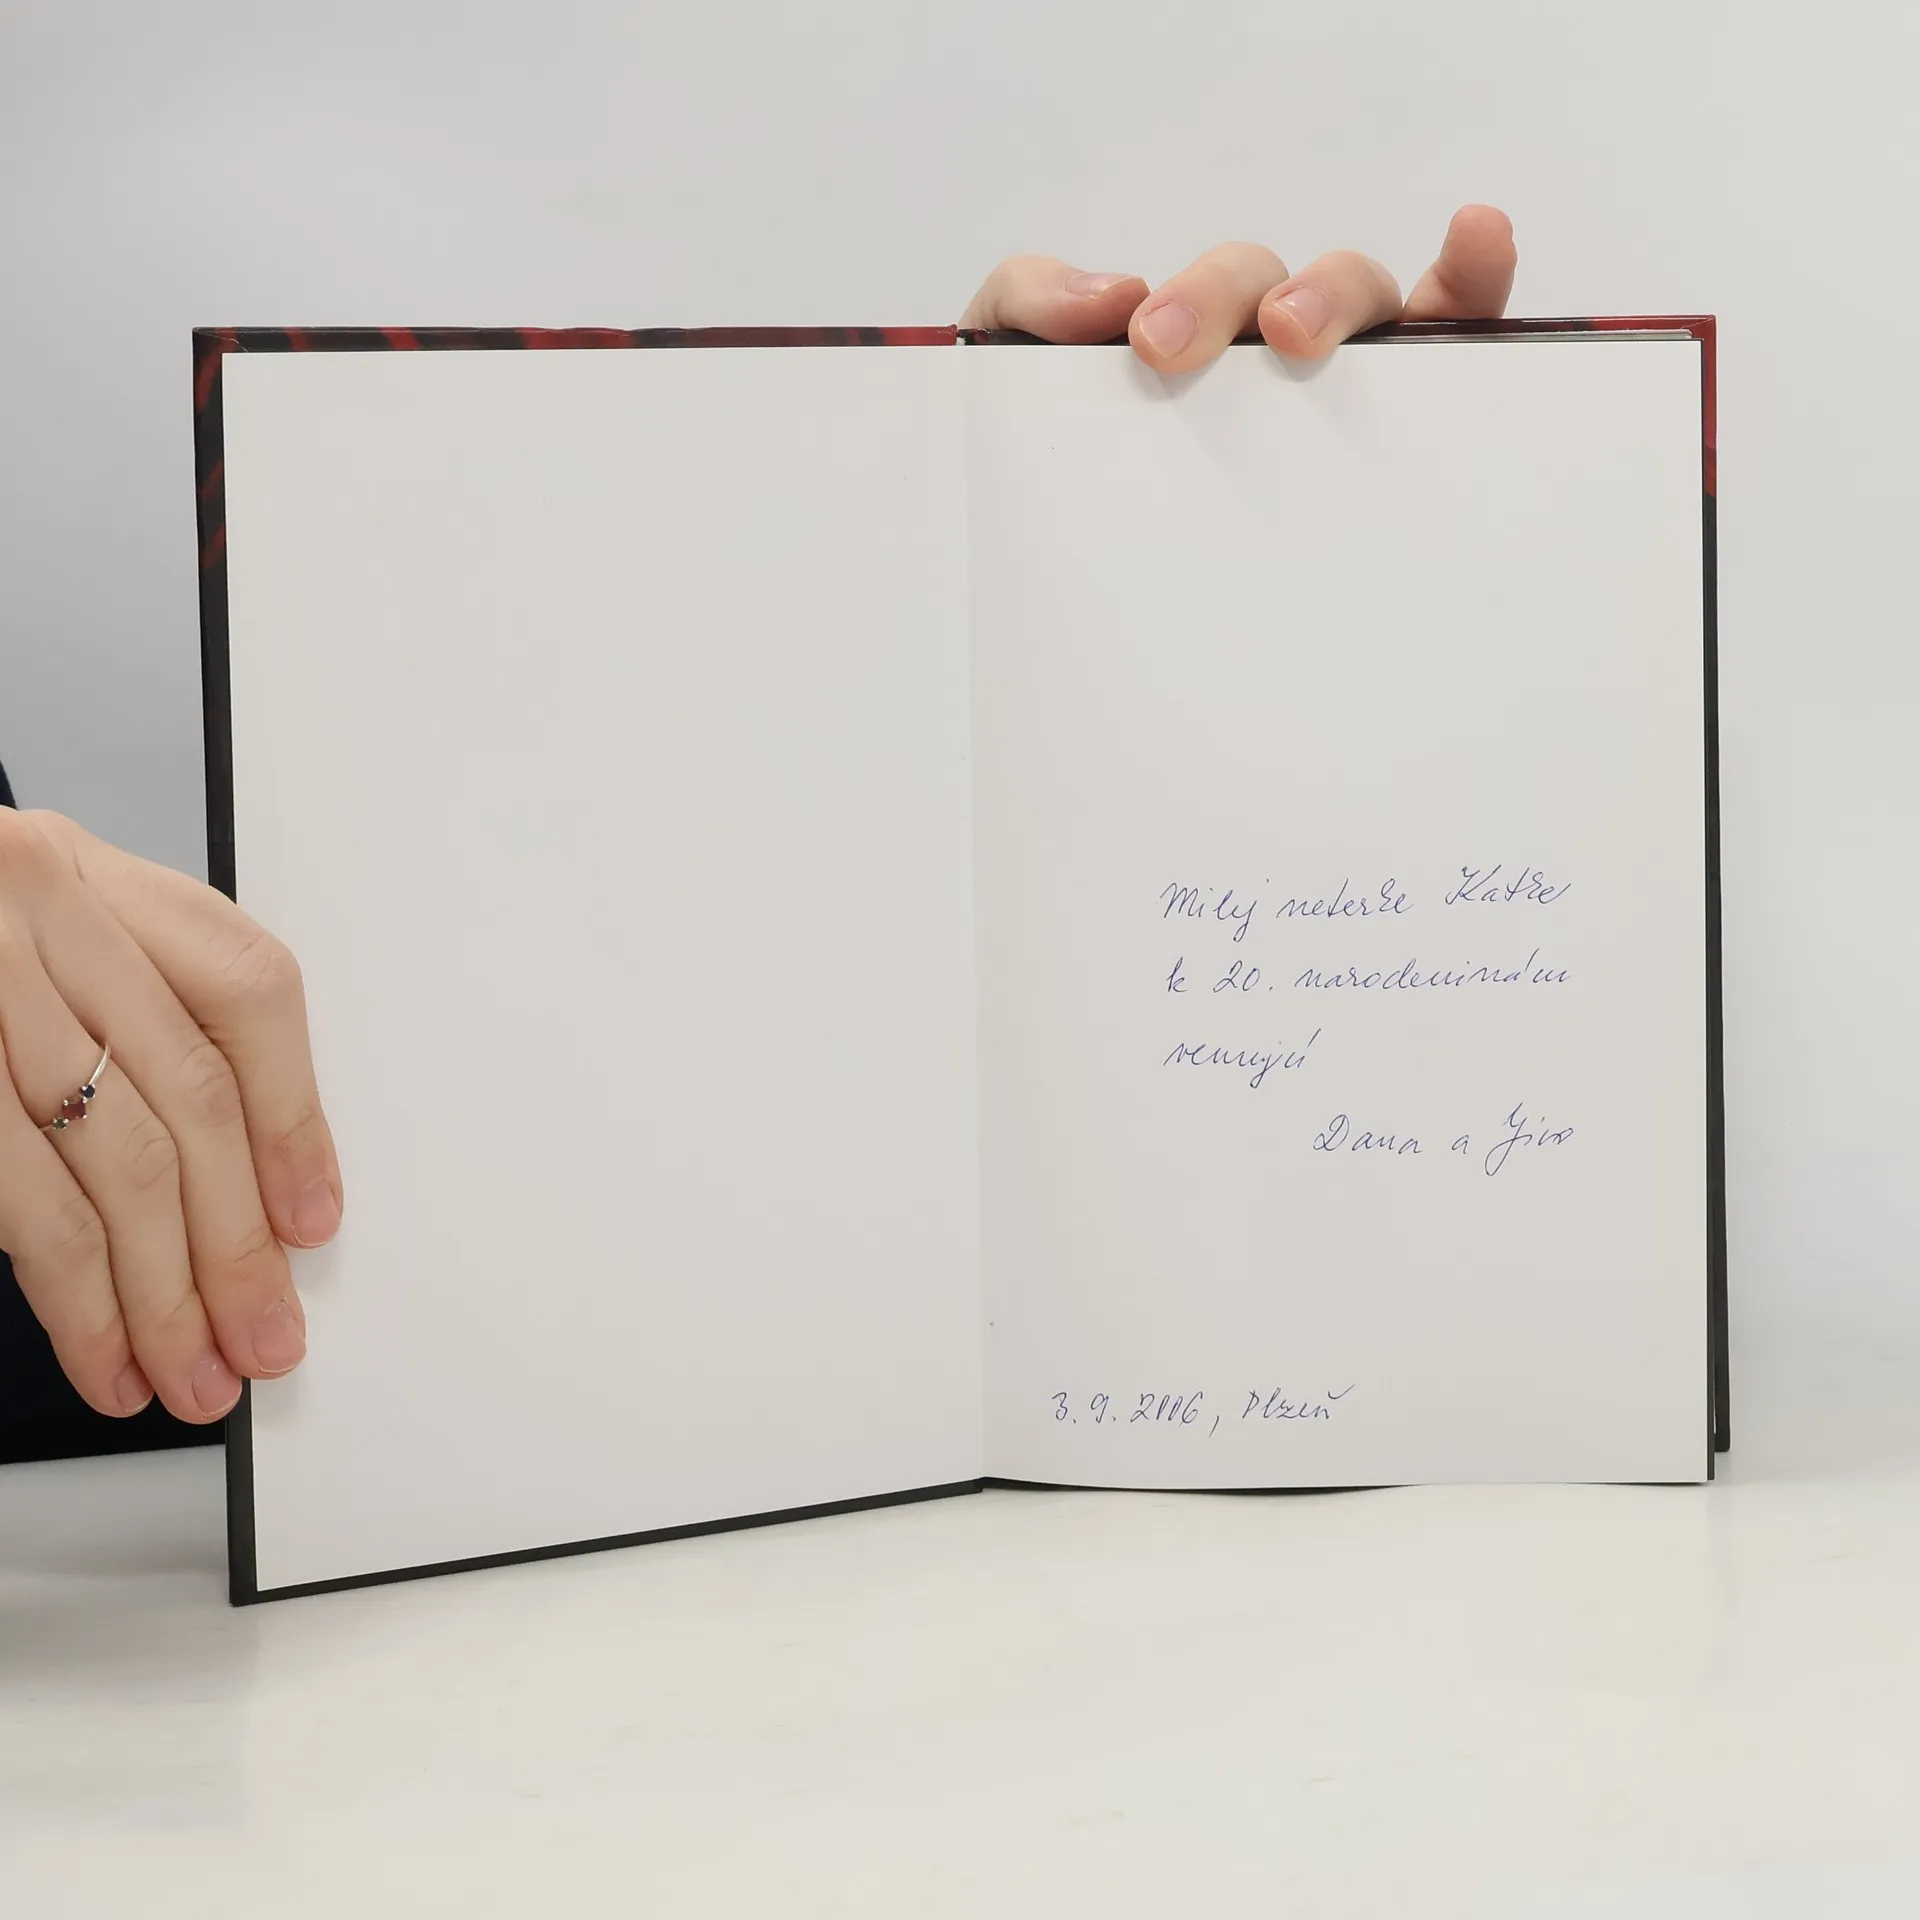 Milej neteřce Katře
k 20. narodeninám
venujú
Dana a
3. 9. 2006, Plzeň